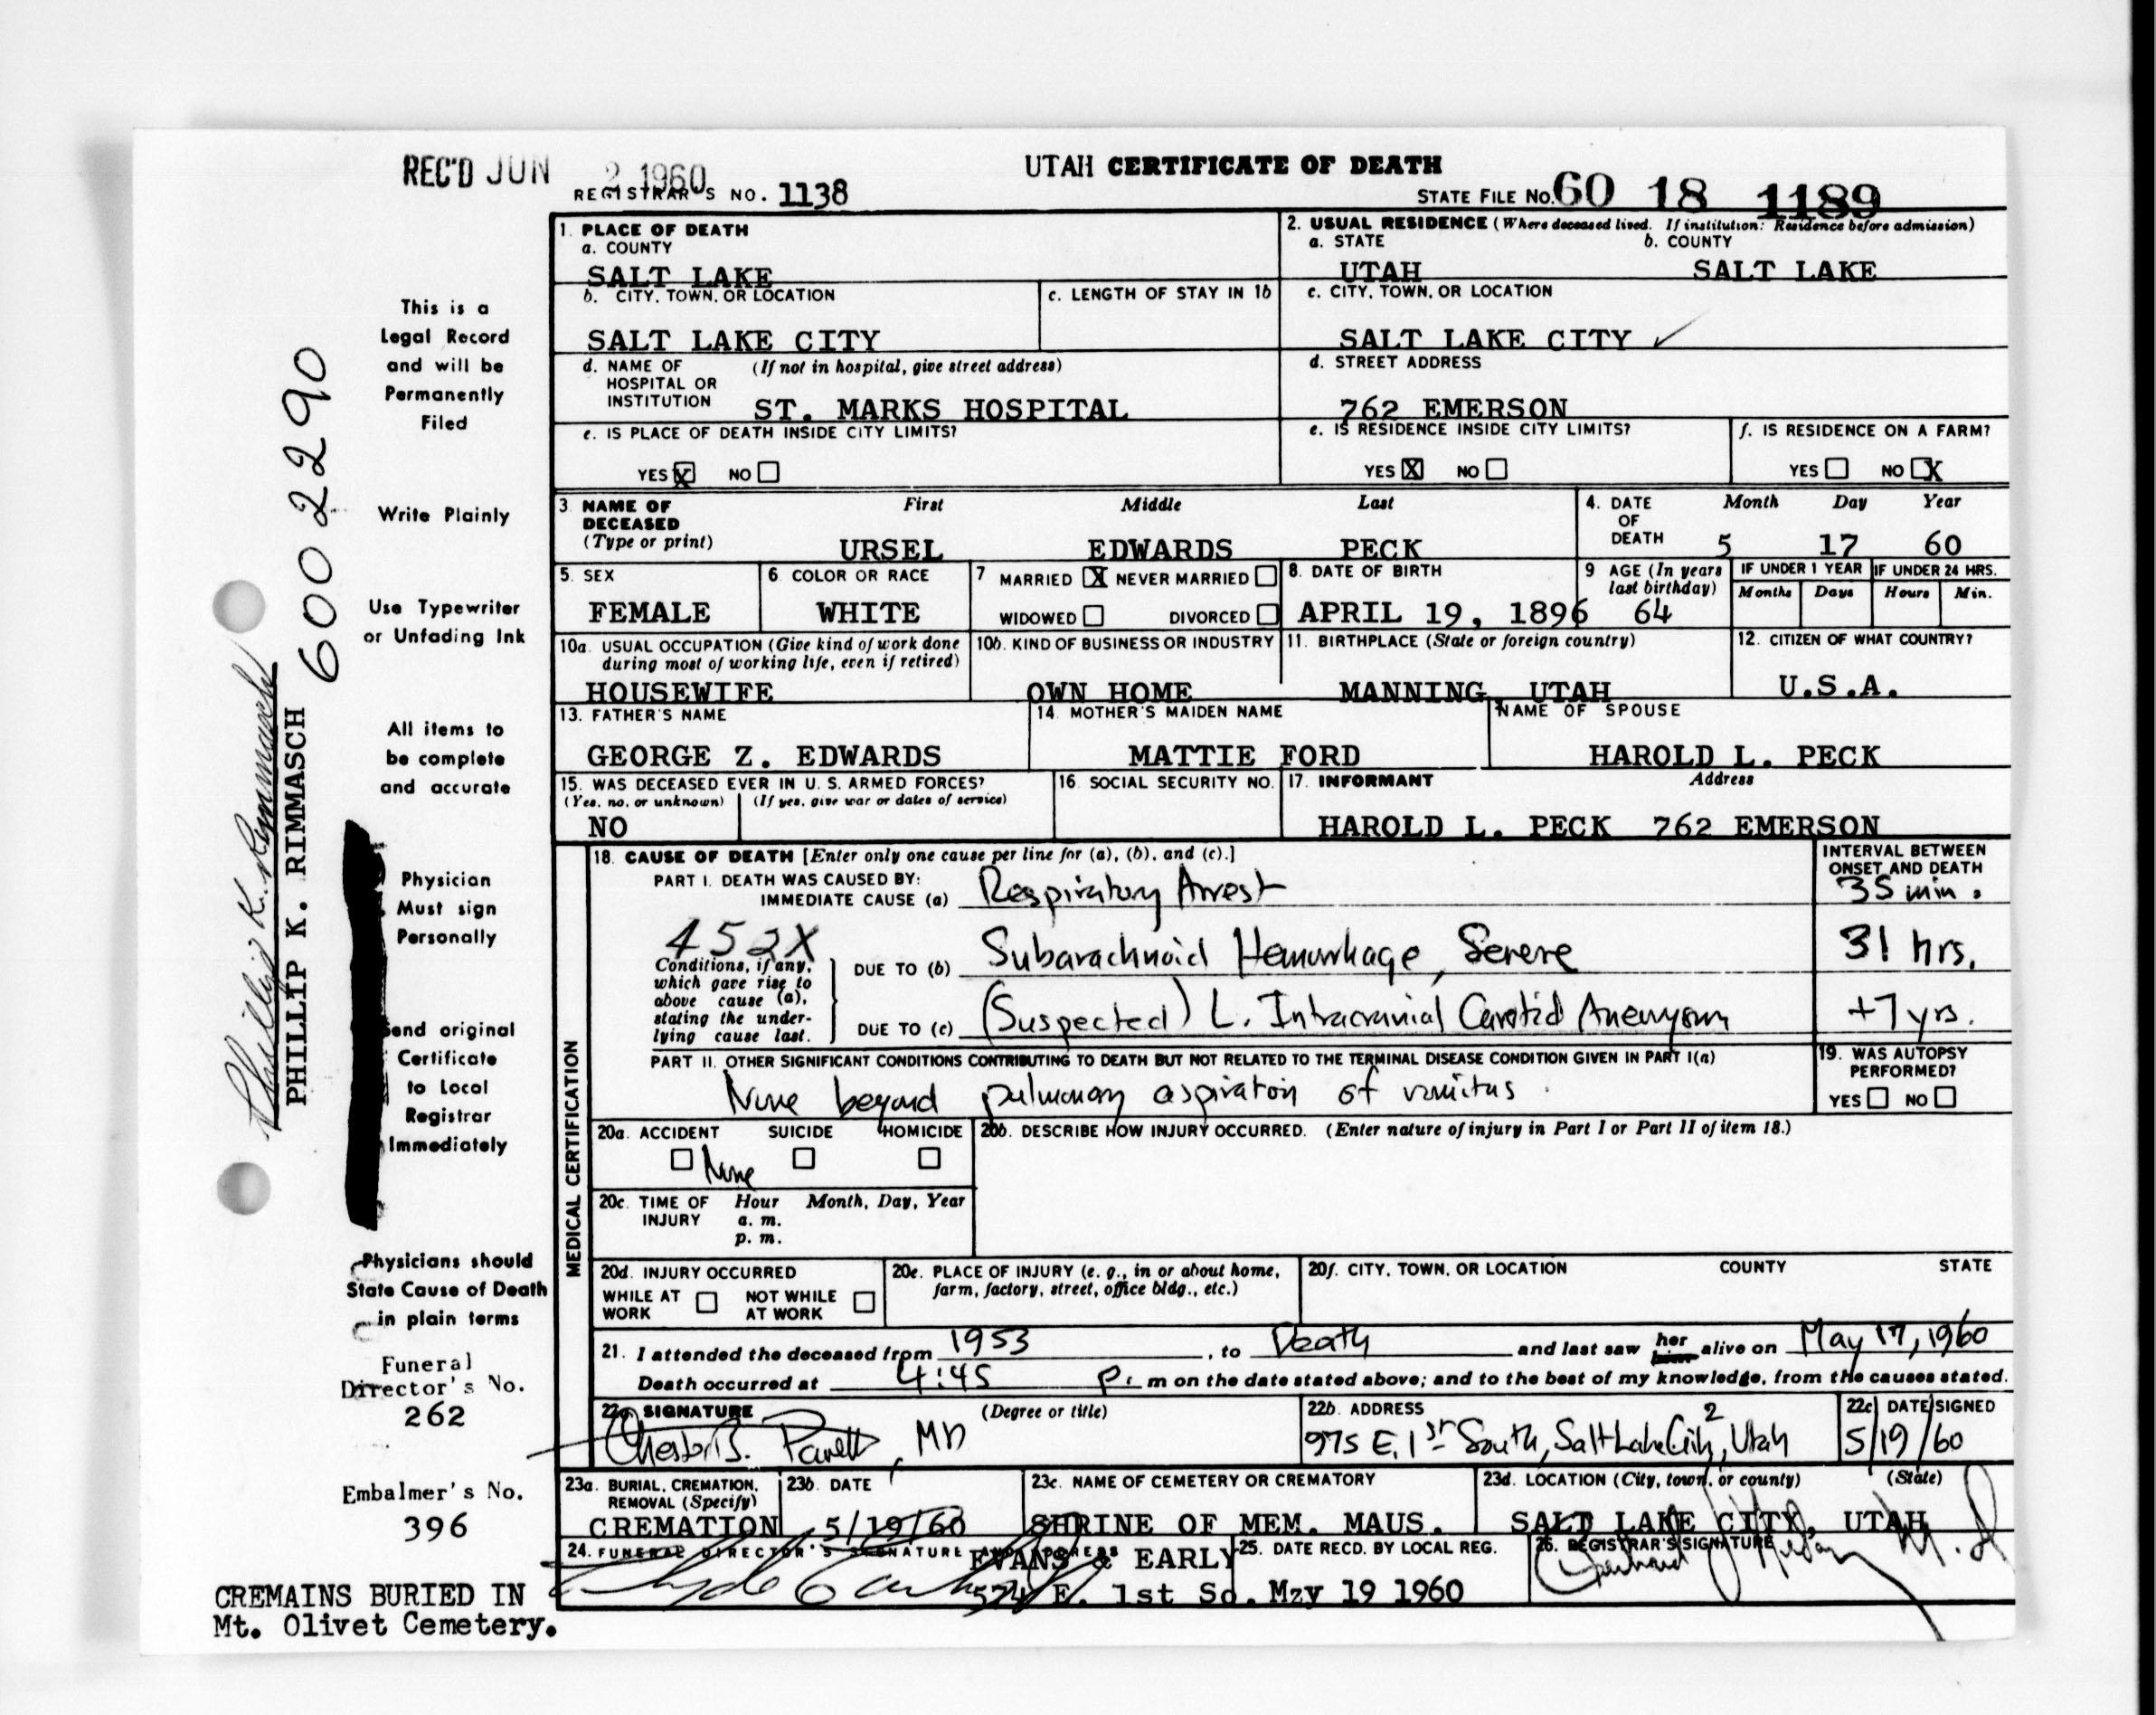 REC'D JUN 2 1960
UTAH CERTIFICATE OF DEATH
REGISTRAR'S NO. 1138
STATE FILE NO. 60 18 1189
1. PLACE OF DEATH
a. COUNTY
SALT LAKE
2. USUAL RESIDENCE (Where deceased lived. If institution: Residence before admission)
a. STATE b. COUNTY
UTAH SALT LAKE
b. CITY, TOWN, OR LOCATION
SALT LAKE CITY
c. LENGTH OF STAY IN 1b
c. CITY, TOWN, OR LOCATION
SALT LAKE CITY ✓
d. NAME OF (If not in hospital, give street address)
HOSPITAL OR
INSTITUTION ST. MARKS HOSPITAL
d. STREET ADDRESS
762 EMERSON
e. IS PLACE OF DEATH INSIDE CITY LIMITS?
YES X NO
e. IS RESIDENCE INSIDE CITY LIMITS?
YES X NO
f. IS RESIDENCE ON A FARM?
YES NO X
3. NAME OF First Middle Last
DECEASED
(Type or print) URSEL EDWARDS PECK
4. DATE Month Day Year
OF
DEATH 5 17 60
5. SEX
FEMALE
6. COLOR OR RACE
WHITE
7 MARRIED X NEVER MARRIED
WIDOWED DIVORCED
8. DATE OF BIRTH
APRIL 19, 1896
9 AGE (In years
last birthday)
64
IF UNDER 1 YEAR IF UNDER 24 HRS.
Months Days Hours Min.
10a. USUAL OCCUPATION (Give kind of work done
during most of working life, even if retired)
HOUSEWIFE
10b. KIND OF BUSINESS OR INDUSTRY
OWN HOME
11. BIRTHPLACE (State or foreign country)
MANNING, UTAH
12. CITIZEN OF WHAT COUNTRY?
U.S.A.
13. FATHER'S NAME
GEORGE Z. EDWARDS
14. MOTHER'S MAIDEN NAME
MATTIE FORD
NAME OF SPOUSE
HAROLD L. PECK
15. WAS DECEASED EVER IN U. S. ARMED FORCES?
(Yes, no, or unknown) (If yes, give war or dates of service)
NO
16. SOCIAL SECURITY NO.
17. INFORMANT Address
HAROLD L. PECK 762 EMERSON
MEDICAL CERTIFICATION
18. CAUSE OF DEATH [Enter only one cause per line for (a), (b), and (c).]
PART I. DEATH WAS CAUSED BY:
IMMEDIATE CAUSE (a) Respiratory Arrest
INTERVAL BETWEEN
ONSET AND DEATH
35 min.
452X
Conditions, if any,
which gave rise to
above cause (a),
stating the under-
lying cause last.
DUE TO (b) Subarachnoid Hemorrhage, Severe
31 hrs.
DUE TO (c) (Suspected) L. Intracranial Carotid Aneurysm
+7 yrs.
PART II. OTHER SIGNIFICANT CONDITIONS CONTRIBUTING TO DEATH BUT NOT RELATED TO THE TERMINAL DISEASE CONDITION GIVEN IN PART I(a)
None beyond pulmonary aspiration of vomitus.
19. WAS AUTOPSY
PERFORMED?
YES NO
20a. ACCIDENT SUICIDE HOMICIDE
None
20b. DESCRIBE HOW INJURY OCCURRED. (Enter nature of injury in Part I or Part II of item 18.)
20c. TIME OF Hour Month, Day, Year
INJURY a. m.
p. m.
20d. INJURY OCCURRED
WHILE AT NOT WHILE
WORK AT WORK
20e. PLACE OF INJURY (e. g., in or about home,
farm, factory, street, office bldg., etc.)
20f. CITY, TOWN, OR LOCATION COUNTY STATE
21. I attended the deceased from 1953, to Death and last saw her him alive on May 17, 1960
Death occurred at 4:45 p. m on the date stated above; and to the best of my knowledge, from the causes stated.
22a SIGNATURE (Degree or title)
MD
22b. ADDRESS
975 E. 1st South, Salt Lake City 2, Utah
22c DATE SIGNED
5/19/60
23a. BURIAL, CREMATION,
REMOVAL (Specify)
CREMATION
23b. DATE
5/19/60
23c. NAME OF CEMETERY OR CREMATORY
SHRINE OF MEM. MAUS.
23d. LOCATION (City, town, or county) (State)
SALT LAKE CITY, UTAH
24. FUNERAL DIRECTOR'S SIGNATURE ADDRESS
EVANS & EARLY
574 E. 1st So.
25. DATE RECD. BY LOCAL REG.
Mzy 19 1960
26. REGISTRAR'S SIGNATURE
This is a
Legal Record
and will be
Permanently
Filed
Write Plainly
Use Typewriter
or Unfading Ink
All items to
be complete
and accurate
Physician
Must sign
Personally
Send original
Certificate
to Local
Registrar
Immediately
Physicians should
State Cause of Death
in plain terms
Funeral
Director's No.
262
Embalmer's No.
396
CREMAINS BURIED IN
Mt. Olivet Cemetery.
6002290
Phillip K. Rimmasch
PHILLIP K. RIMMASCH